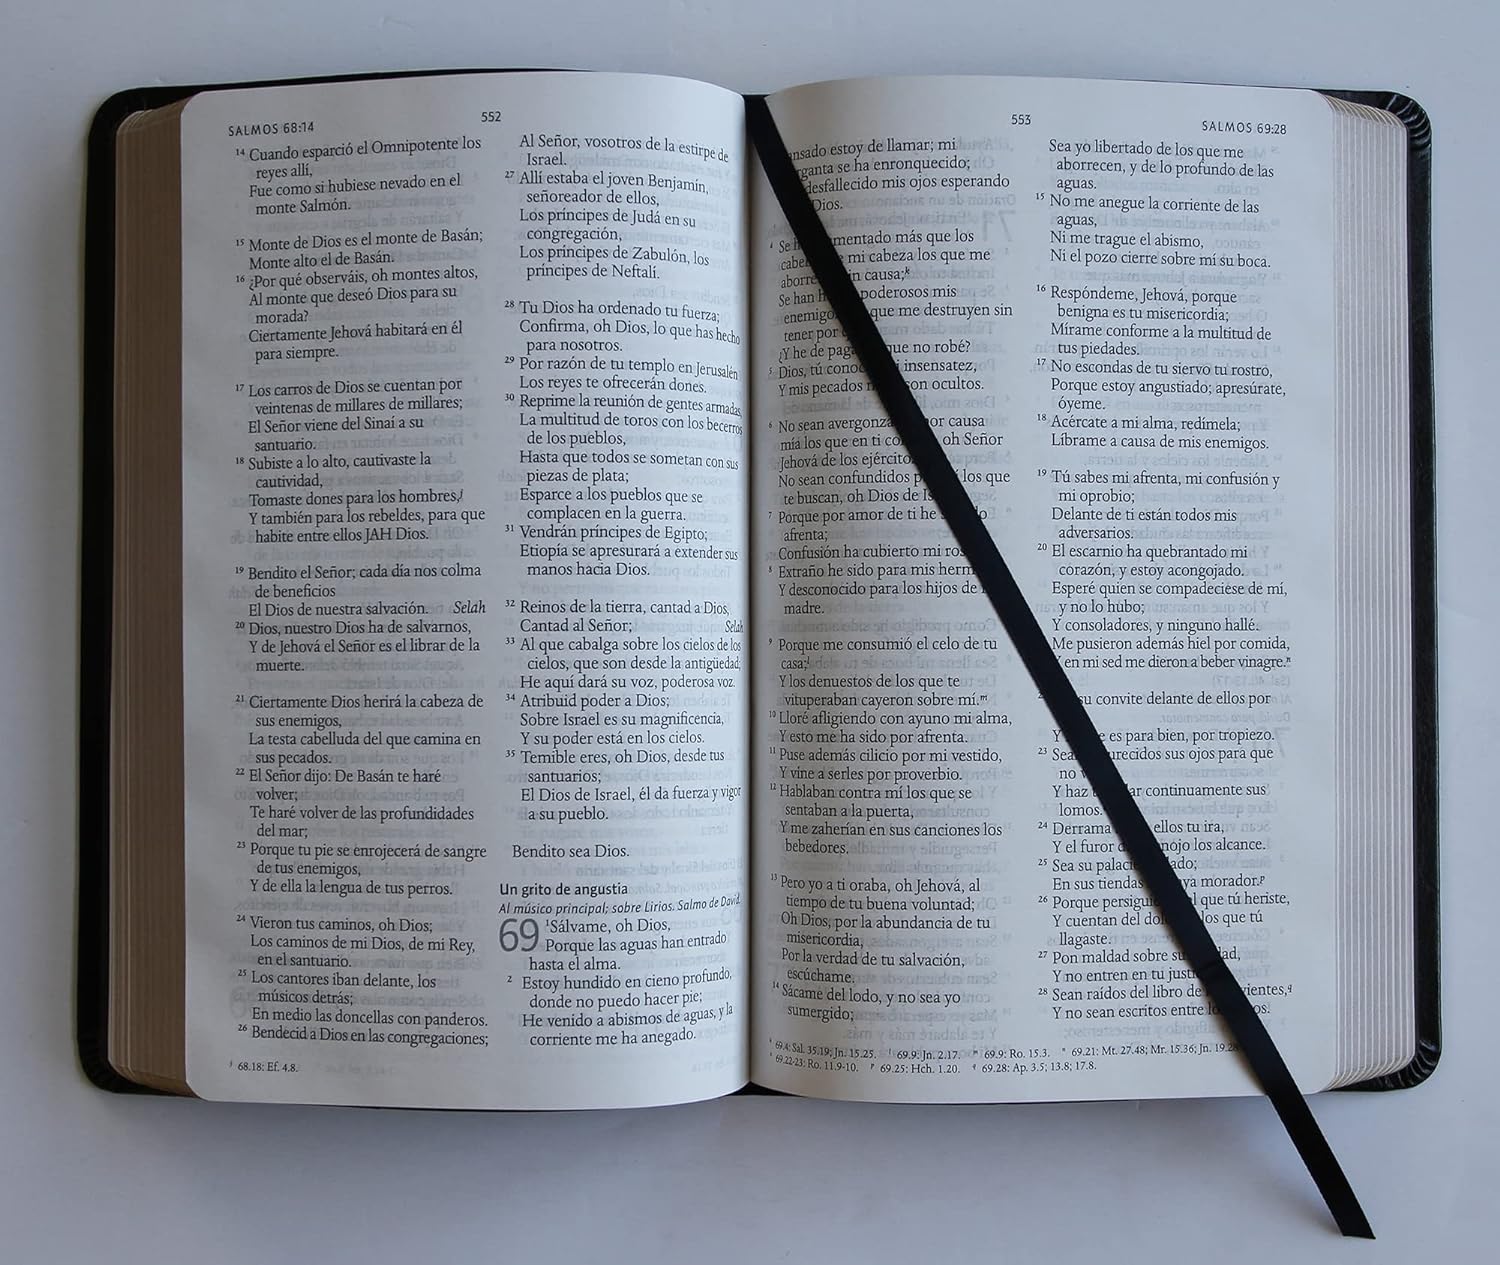 SALMOS 68:14
552
14 Cuando esparció el Omnipotente los
reyes allí,
Fue como si hubiese nevado en el
monte Salmón.
15 Monte de Dios es el monte de Basán;
Monte alto el de Basán.
16 ¿Por qué observáis, oh montes altos,
Al monte que deseó Dios para su
morada?
Ciertamente Jehová habitará en él
para siempre.
17 Los carros de Dios se cuentan por
veintenas de millares de millares;
El Señor viene del Sinaí a su
santuario.
18 Subiste a lo alto, cautivaste la
cautividad,
Tomaste dones para los hombres,j
Y también para los rebeldes, para que
habite entre ellos JAH Dios.
19 Bendito el Señor; cada día nos colma
de beneficios
El Dios de nuestra salvación. Selah
20 Dios, nuestro Dios ha de salvarnos,
Y de Jehová el Señor es el librar de la
muerte.
21 Ciertamente Dios herirá la cabeza de
sus enemigos,
La testa cabelluda del que camina en
sus pecados.
22 El Señor dijo: De Basán te haré
volver;
Te haré volver de las profundidades
del mar;
23 Porque tu pie se enrojecerá de sangre
de tus enemigos,
Y de ella la lengua de tus perros.
24 Vieron tus caminos, oh Dios;
Los caminos de mi Dios, de mi Rey,
en el santuario.
25 Los cantores iban delante, los
músicos detrás;
En medio las doncellas con panderos.
26 Bendecid a Dios en las congregaciones;
j 68.18: Ef. 4.8.
Al Señor, vosotros de la estirpe de
Israel.
27 Allí estaba el joven Benjamín,
señoreador de ellos,
Los príncipes de Judá en su
congregación,
Los príncipes de Zabulón, los
príncipes de Neftalí.
28 Tu Dios ha ordenado tu fuerza;
Confirma, oh Dios, lo que has hecho
para nosotros.
29 Por razón de tu templo en Jerusalén
Los reyes te ofrecerán dones.
30 Reprime la reunión de gentes armadas,
La multitud de toros con los becerros
de los pueblos,
Hasta que todos se sometan con sus
piezas de plata;
Esparce a los pueblos que se
complacen en la guerra.
31 Vendrán príncipes de Egipto;
Etiopía se apresurará a extender sus
manos hacia Dios.
32 Reinos de la tierra, cantad a Dios,
Cantad al Señor; Selah
33 Al que cabalga sobre los cielos de los
cielos, que son desde la antigüedad;
He aquí dará su voz, poderosa voz.
34 Atribuid poder a Dios;
Sobre Israel es su magnificencia,
Y su poder está en los cielos.
35 Temible eres, oh Dios, desde tus
santuarios;
El Dios de Israel, él da fuerza y vigor
a su pueblo.
Bendito sea Dios.
Un grito de angustia
Al músico principal; sobre Lirios. Salmo de David.
69 1 Sálvame, oh Dios,
Porque las aguas han entrado
hasta el alma.
2 Estoy hundido en cieno profundo,
donde no puedo hacer pie;
He venido a abismos de aguas, y la
corriente me ha anegado.
553
SALMOS 69:28
estoy de llamar; mi
se ha enronquecido;
desfallecido mis ojos esperando
Dios.
4 Se más que los
mi cabeza los que me
in causa;k
Se han poderosos mis
que me destruyen sin
tener por
¿Y he de que no robé?
5 Dios, tú insensatez,
Y mis pecados ocultos.
6 No sean por causa
mía los que en ti oh Señor
Jehová de los
No sean confundidos los que
te buscan, oh Dios de
7 Porque por amor de ti he
afrenta;
Confusión ha cubierto mi
8 Extraño he sido para mis
Y desconocido para los hijos de
madre.
9 Porque me consumió el celo de tu
casa;l
Y los denuestos de los que te
vituperaban cayeron sobre mí.m
10 Lloré afligiendo con ayuno mi alma,
Y esto me ha sido por afrenta.
11 Puse además cilicio por mi vestido,
Y vine a serles por proverbio.
12 Hablaban contra mí los que se
sentaban a la puerta,
Y me zaherían en sus canciones los
bebedores.
13 Pero yo a ti oraba, oh Jehová, al
tiempo de tu buena voluntad;
Oh Dios, por la abundancia de tu
misericordia,
Por la verdad de tu salvación,
escúchame.
14 Sácame del lodo, y no sea yo
sumergido;
Sea yo libertado de los que me
aborrecen, y de lo profundo de las
aguas.
15 No me anegue la corriente de las
aguas,
Ni me trague el abismo,
Ni el pozo cierre sobre mí su boca.
16 Respóndeme, Jehová, porque
benigna es tu misericordia;
Mírame conforme a la multitud de
tus piedades.
17 No escondas de tu siervo tu rostro,
Porque estoy angustiado; apresúrate,
óyeme.
18 Acércate a mi alma, redímela;
Líbrame a causa de mis enemigos.
19 Tú sabes mi afrenta, mi confusión y
mi oprobio;
Delante de ti están todos mis
adversarios.
20 El escarnio ha quebrantado mi
corazón, y estoy acongojado.
Esperé quien se compadeciese de mí,
y no lo hubo;
Y consoladores, y ninguno hallé.
Me pusieron además hiel por comida,
Y en mi sed me dieron a beber vinagre.n
su convite delante de ellos por
es para bien, por tropiezo.
23 Sean sus ojos para que
no
Y haz continuamente sus
lomos.
24 Derrama ellos tu ira,
Y el furor de los alcance.
25 Sea su
En sus tiendas morador.p
26 Porque al que tú heriste,
Y cuentan del los que tú
llagaste.
27 Pon maldad sobre su
Y no entren en tu
28 Sean raídos del libro de q
Y no sean escritos entre
k 69.4: Sal. 35.19; Jn. 15.25. l 69.9: Jn. 2.17. m 69.9: Ro. 15.3. n 69.21: Mt. 27.48; Mr. 15.36; Jn. 19.28
69.22-23: Ro. 11.9-10. p 69.25: Hch. 1.20. q 69.28: Ap. 3.5; 13.8; 17.8.